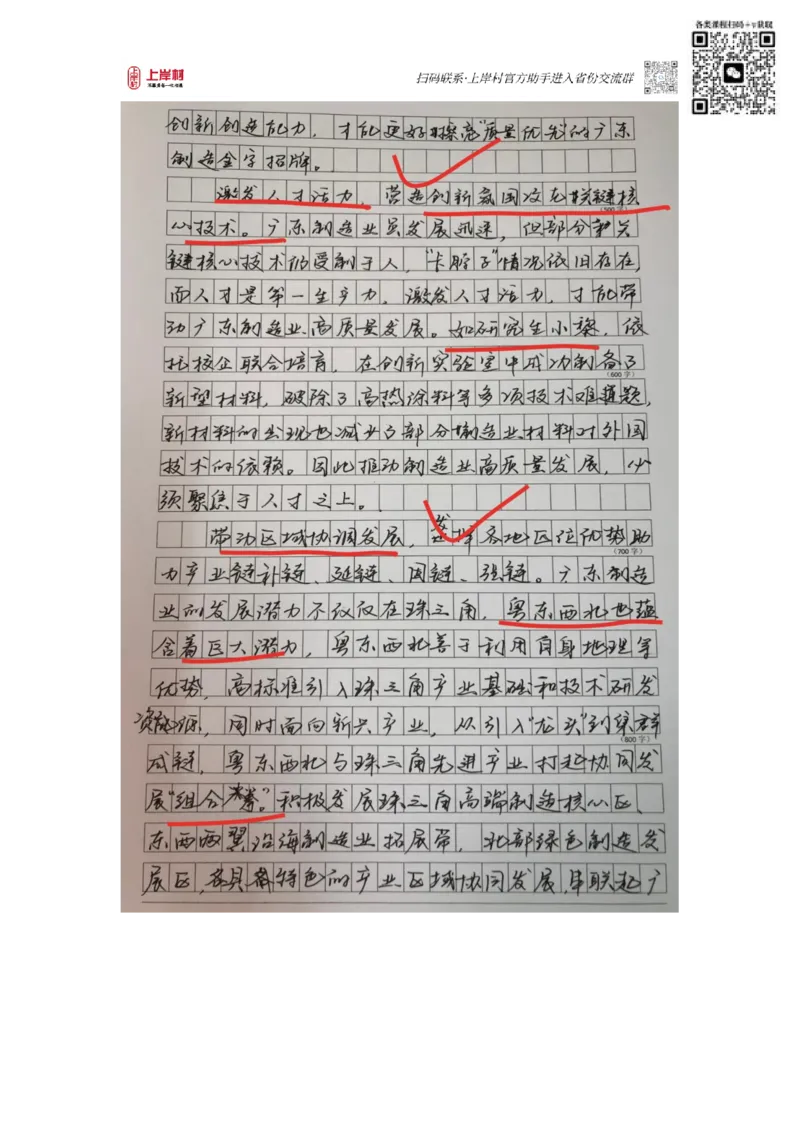 各类课程扫码+v获取
上岸村
上岸村
不靠爸爸一次相遇
扫码联系·上岸村官方助手进入省份交流群
创新创造能力，才能更好擦亮“质量优先”的广东
制造金字招牌。
激发人才活力，营造创新氛围攻克关键核
(500字)
心技术。广东制造业虽发展迅速，但部分关
键核心技术仍受制于人，“卡脖子”情况依旧存在，
而人才是第一生产力，激发人才活力，才能带
动广东制造业高质量发展。如研究生小黎，依
托校企联合培育，在创新实验室中成功制备了
(600字)
新型材料，破除了高热涂料等多项技术难题，
新材料的出现也减少了部分制造业材料对外国
技术的依赖。因此推动制造业高质量发展，必
须聚焦于人才之上。
带动区域协调发展，发挥各地区位优势助
(700字)
力产业链补链、延链、固链、强链。广东制造
业的发展潜力不仅仅在珠三角，粤东西北也蕴
含着巨大潜力，粤东西北善于利用自身地理等
优势，高标准引入珠三角产业基础和技术研发
资源，同时面向新兴产业，从引入“龙头”到集群
(800字)
成链，粤东西北与珠三角先进产业打起协同发
展“组合拳”。积极发展珠三角高端制造核心区、
东西两翼沿海制造业拓展带，北部绿色制造发
展区，各具备特色的产业区域协同发展，串联起广